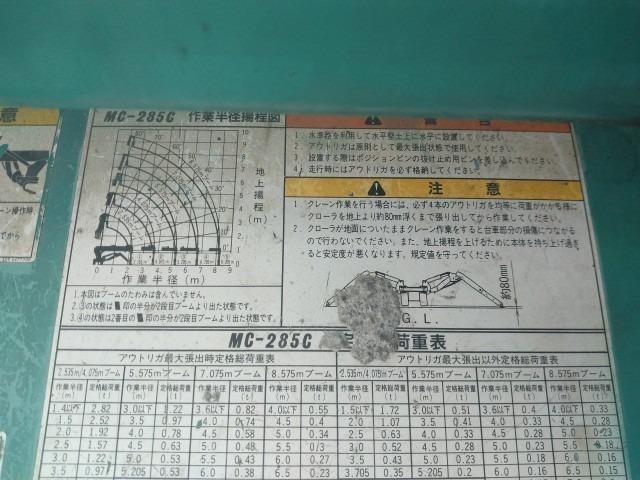 意
MC-285C 作業半径揚程図
警 告
1. 水準器を利用して水平堅土上に水平に設置してください。
2. アウトリガは原則として最大張出状態で使用してください。
3. 設置する際はポジションピンの抜け止め用ピンを差し込んでください。
4. 走行時にはアウトリガを必ず格納してください。
注 意
1. クレーン作業を行う場合には、必ず4本のアウトリガを均等に荷重がかかる様に
クローラを地上より約80mm浮くまで張り出してから作業してください。
2. クローラが地面についたままクレーン作業をすると台車部分の損傷につながる
ので行わないでください。また、地上揚程を上げるために本体を持ち上げ過ぎ
ると安定度が悪くなります。規定値を守ってください。
約80mm
G.L.
地上揚程(m)
0 1 2 3 4 5 6 7 8 9
作業半径(m)
1.本図はブームのたわみは含んでいません。
2.③の状態は 印の半分が2段目ブームより出た状態です。
3.④の状態は2番目の 印の半分が2段目ブームより出た状態です。
ーン操作時、
でから
MC-285C 荷重表
アウトリガ最大張出時定格総荷重表 アウトリガ最大張出以外定格総荷重表
2.535m/4.075mブーム 5.575mブーム 7.075mブーム 8.575mブーム 2.535m/4.075mブーム 5.575mブーム 7.075mブーム 8.575mブーム
作業半径(m) 定格総荷重(t) 作業半径(m) 定格総荷重(t) 作業半径(m) 定格総荷重(t) 作業半径(m) 定格総荷重(t) 作業半径(m) 定格総荷重(t) 作業半径(m) 定格総荷重(t) 作業半径(m) 定格総荷重(t) 作業半径(m) 定格総荷重(t)
1.4以下 2.82 3.0以下 1.22 3.6以下 0.82 4.0以下 0.55 1.5以下 1.72 3.0以下 0.51 3.6以下 0.4 4.0以下 0.33
1.5 2.52 3.5 0.97 4.0 0.74 4.5 0.5 2.0 1.07 3.5 0.41 4.0 0.33 4.5 0.28
2.0 1.92 4.0 0.78 4.5 0.58 5.0 0.34 2.5 0.63 4.0 0.33 4.5 0.28 5.0 0.23
2.5 1.57 4.5 0.63 5.0 0.48 5.5 3.0 0.52 4.5 0.28 5.0 0.23 5.5 0.18
3.0 1.22 5.0 0.53 5.5 0.43 6.0 0.27 3.5 0.43 5.0 0.23 5.5 0.18 6.0 0.16
3.5 0.97 5.205 0.53 6.0 0.38 6.5 0.23 3.705 0.35 5.205 0.2 6.0 0.16 6.5 0.15